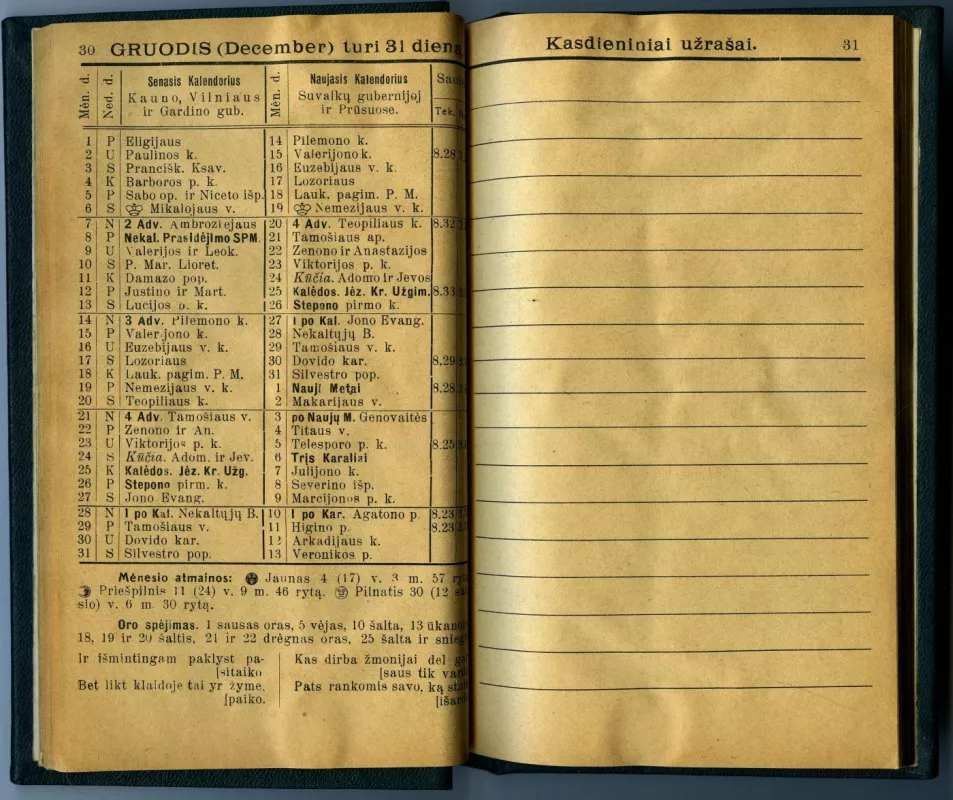 30 GRUODIS (December) turi 31 diena
Mėn. d. Ned. d. Senasis Kalendorius Mėn. d. Naujasis Kalendorius
Kauno, Vilniaus Suvalkų gubernijoj
ir Gardino gub. ir Prūsuose. Tek.
1 P Eligijaus 14 Pilemono k.
2 U Paulinos k. 15 Valerijono k. 8.28
3 S Prancišk. Ksav. 16 Euzebijaus v. k.
4 K Barboros p. k. 17 Lozoriaus
5 P Sabo op. ir Niceto išp. 18 Lauk. pagim. P. M.
6 S Mikalojaus v. 19 Nemezijaus v. k.
7 N 2 Adv. Ambroziejaus 20 4 Adv. Teopiliaus k. 8.32
8 P Nekal. Prasidėjimo SPM. 21 Tamošiaus ap.
9 U Valerijos ir Leok. 22 Zenono ir Anastazijos
10 S P. Mar. Lioret. 23 Viktorijos p. k.
11 K Damazo pop. 24 Kūčia. Adomo ir Jevos
12 P Justino ir Mart. 25 Kalėdos. Jėz. Kr. Užgim. 8.33
13 S Lucijos p. k. 26 Stepono pirmo k.
14 N 3 Adv. Pilemono k. 27 I po Kal. Jono Evang.
15 P Valerijono k. 28 Nekaltųjų B.
16 U Euzebijaus v. k. 29 Tamošiaus v. k.
17 S Lozoriaus 30 Dovido kar. 8.29
18 K Lauk. pagim. P. M. 31 Silvestro pop.
19 P Nemezijaus v. k. 1 Nauji Metai 8.28
20 S Teopiliaus k. 2 Makarijaus v.
21 N 4 Adv. Tamošiaus v. 3 po Naujų M. Genovaitės
22 P Zenono ir An. 4 Titaus v.
23 U Viktorijos p. k. 5 Telesporo p. k. 8.25
24 S Kūčia. Adom. ir Jev. 6 Trįs Karaliai
25 K Kalėdos. Jėz. Kr. Užg. 7 Julijono k.
26 P Stepono pirm. k. 8 Severino išp.
27 S Jono Evang. 9 Marcijonos p. k.
28 N I po Kal. Nekaltųjų B. 10 I po Kar. Agatono p. 8.23
29 P Tamošiaus v. 11 Higino p. 8.23
30 U Dovido kar. 12 Arkadijaus k.
31 S Silvestro pop. 13 Veronikos p.
Mėnesio atmainos: Jaunas 4 (17) v. 3 m. 57
Priešpilnis 11 (24) v. 9 m. 46 rytą. Pilnatis 30 (12
sio) v. 6 m. 30 rytą.
Oro spėjimas. 1 sausas oras, 5 vėjas, 10 šalta, 13
18, 19 ir 20 šaltis, 21 ir 22 drėgnas oras, 25 šalta ir
Ir išmintingam paklyst pa-
[sitaiko
Bet likt klaidoje tai yr žyme.
[paiko.
Kas dirba žmonijai del
[saus tik
Pats rankomis savo, ką
Kasdieniniai užrašai. 31